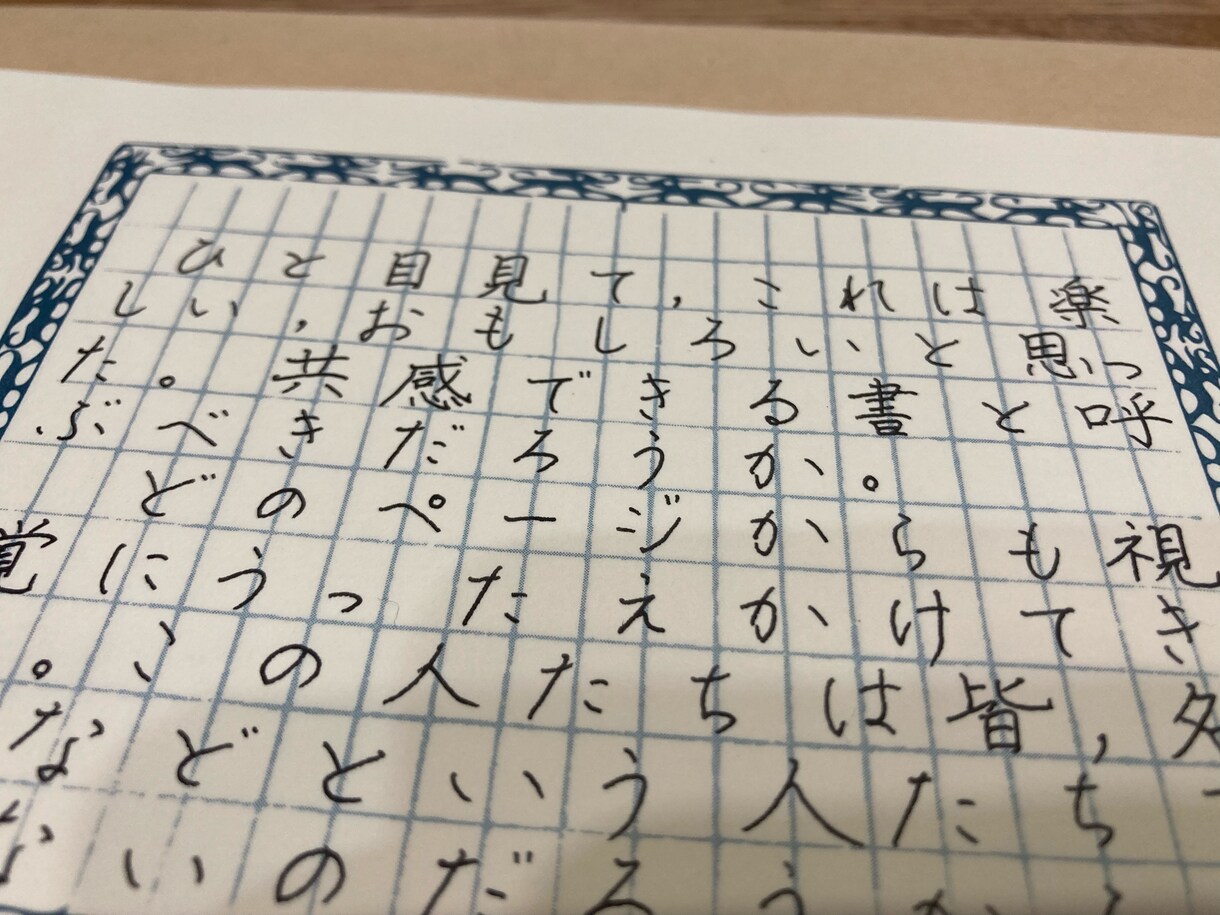 ひと目見て，これは楽
しい，おもしろいと思っ
た。共感できる書と呼
ぶべきだろうか。
どのページからも視
覚にうったえかけてき
。この人たちは皆，
などという人たち
ないのだろうか